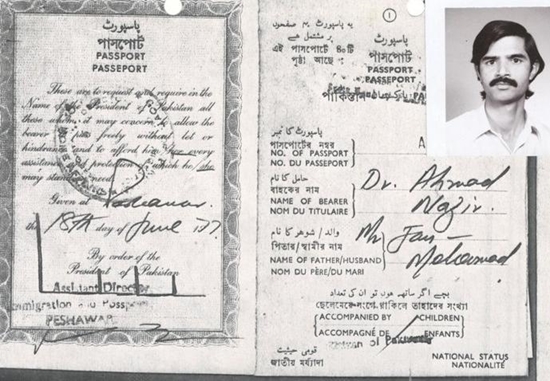 پاسپورٹ
পাসপোর্ট
PASSPORT
PASSEPORT
These are to request and require in the
Name of the President of Pakistan all
those whom it may concern to allow the
bearer to pass freely without let or
hindrance and to afford him her every
assistance protection which he she
may stand
Given at Peshawar
the 18th day of June 77.
By order of the
President of Pakistan
Assistant Director
Immigration and Passport
PESHAWAR
1
یہ پاسپورٹ ۴۰ صفحوں
پر مشتمل ہے
এই পাসপোর্টে ৪০টি
পৃষ্ঠা আছে
پاسپورٹ
পাসপোর্ট
PASSPORT
PASSEPORT
পাকিস্তান
پاسپورٹ کا نمبر
পাসপোর্টের নম্বর
NO. OF PASSPORT
NO. DU PASSEPORT
A
حامل کا نام
বাহকের নাম
NAME OF BEARER
NOM DU TITULAIRE
Dr. Ahmad
Nazir.
والد / شوہر کا نام
পিতার/স্বামীর নাম
NAME OF FATHER/HUSBAND
NOM DU PÈRE/DU MARI
Mohamad
بچے اگر ساتھ ہوں تو ان کی تعداد
ছেলেমেয়ে সংগে থাকিলে তাহাদের সংখ্যা
ACCOMPANIED BY CHILDREN
ACCOMPAGNÉ DE ENFANTS
قومی حیثیت
জাতীয় মর্যাদা
NATIONAL STATUS
NATIONALITÉ